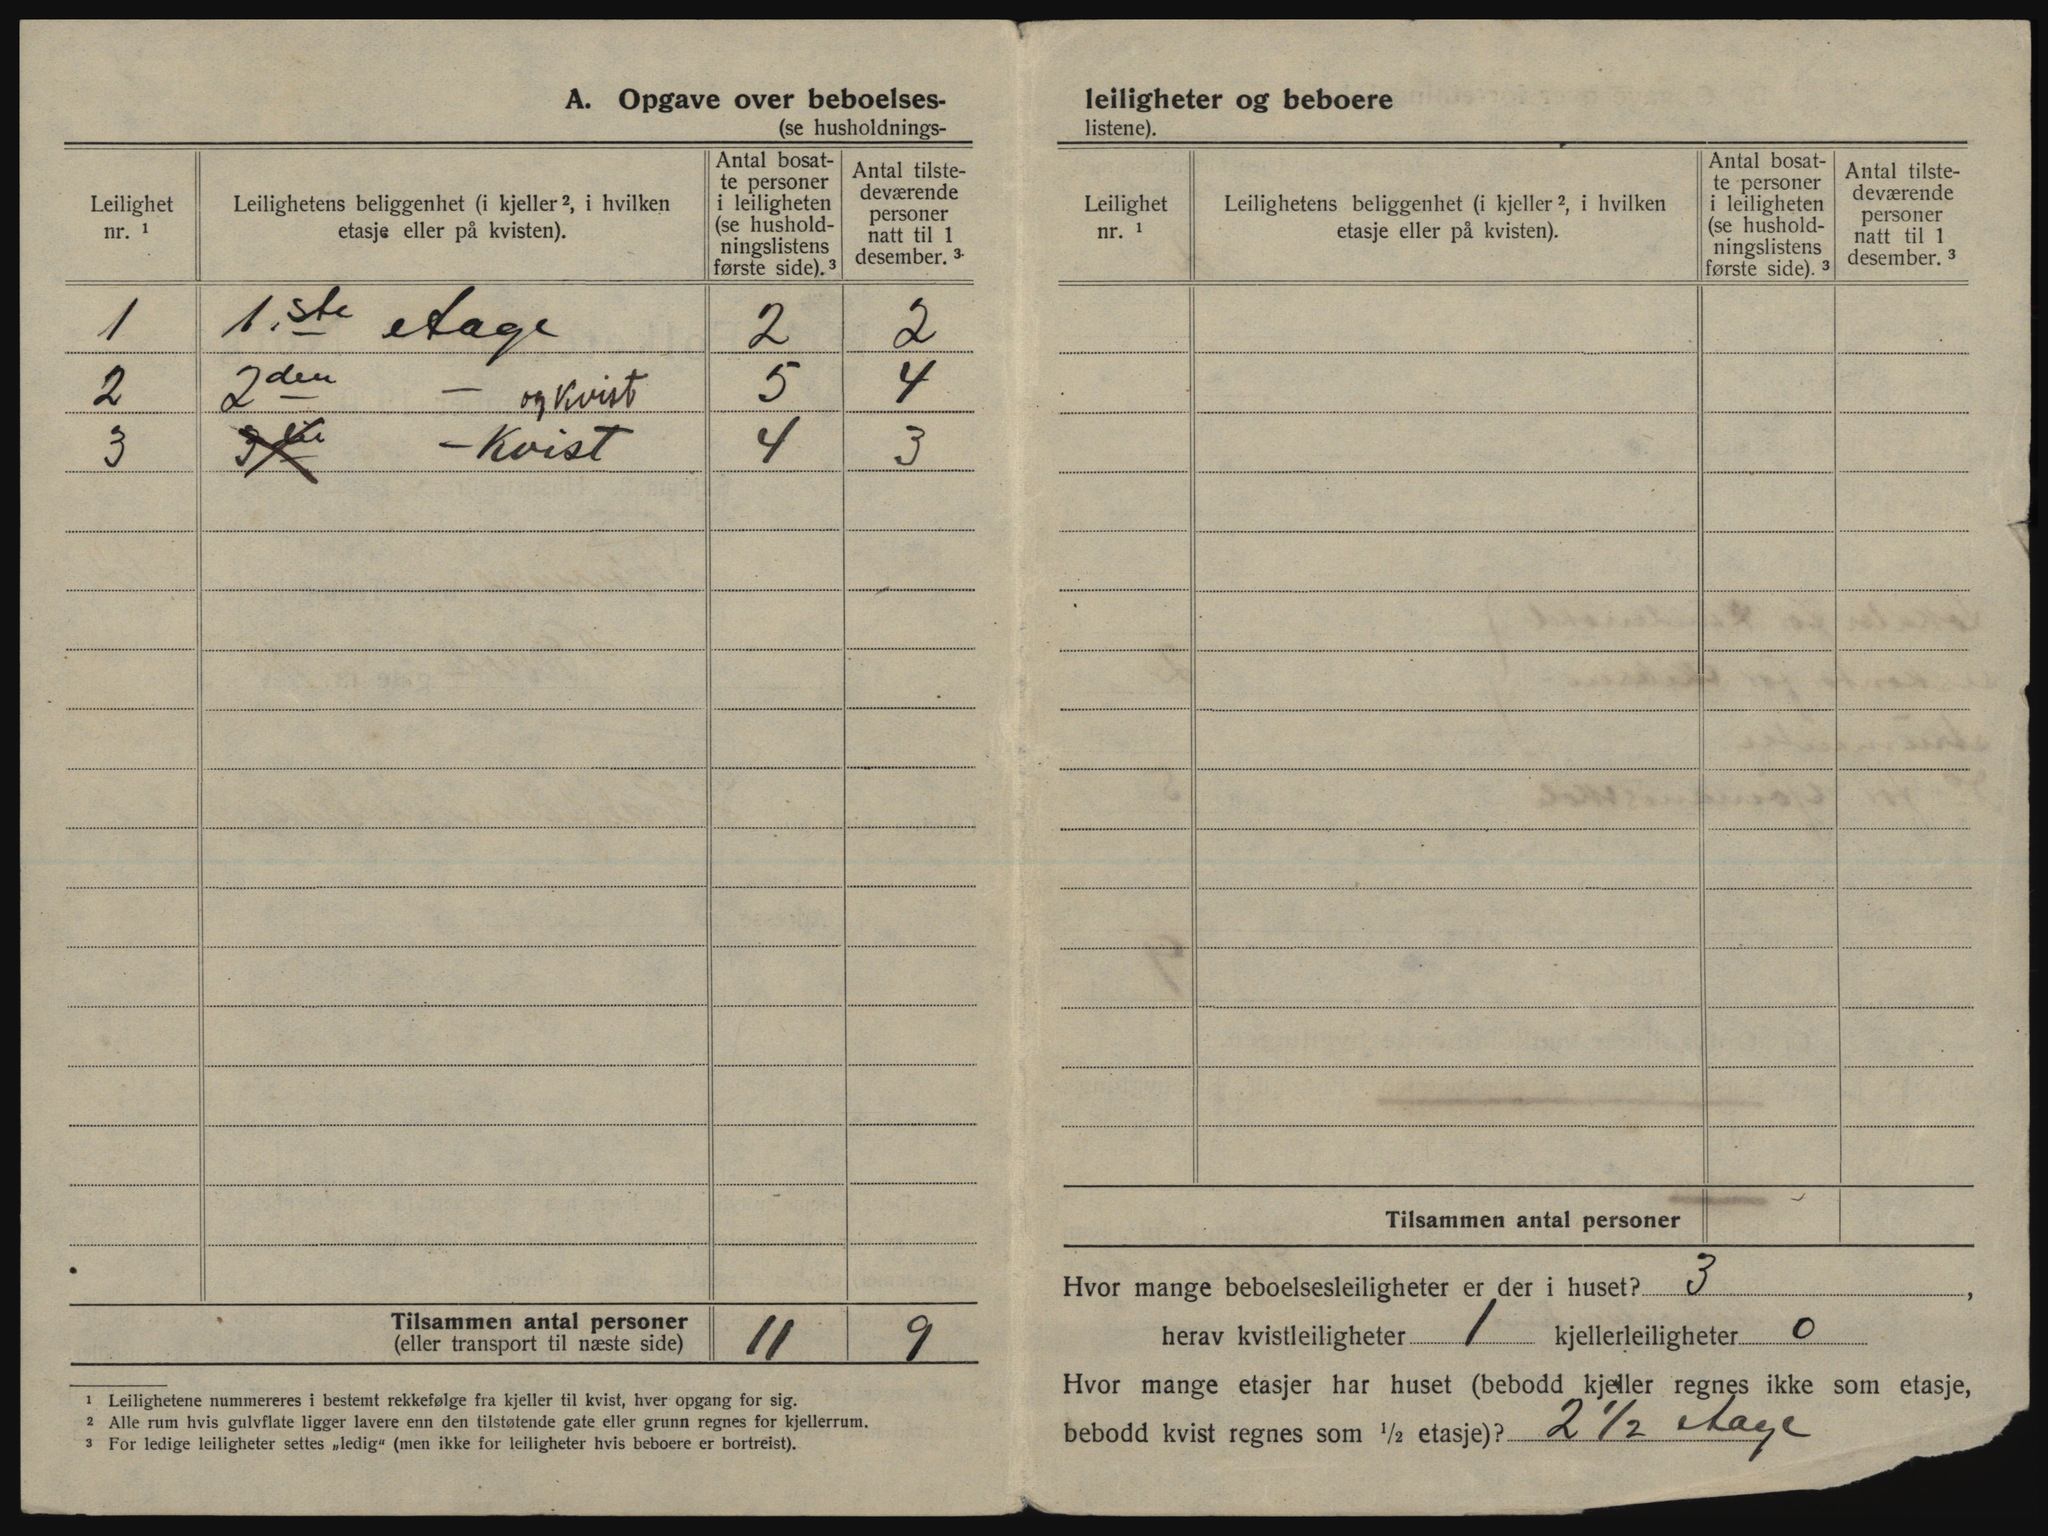 A. Opgave over beboelses-
(se husholdnings-
Leilighet nr. ¹
Leilighetens beliggenhet (i kjeller ², i hvilken etasje eller på kvisten).
Antal bosat-
te personer
i leiligheten
(se hushold-
ningslistens
første side). ³
Antal tilste-
deværende
personer
natt til 1
desember. ³
1 1.ste etage 2 2
2 2den — og kvist 5 4
3 – Kvist 4 3
Tilsammen antal personer 11 9
(eller transport til næste side)
¹ Leilighetene nummereres i bestemt rekkefølge fra kjeller til kvist, hver opgang for sig.
² Alle rum hvis gulvflate ligger lavere enn den tilstøtende gate eller grunn regnes for kjellerrum.
³ For ledige leiligheter settes „ledig“ (men ikke for leiligheter hvis beboere er bortreist).
leiligheter og beboere
listene).
Leilighet nr. ¹
Leilighetens beliggenhet (i kjeller ², i hvilken etasje eller på kvisten).
Antal bosat-
te personer
i leiligheten
(se hushold-
ningslistens
første side). ³
Antal tilste-
deværende
personer
natt til 1
desember. ³
Tilsammen antal personer
Hvor mange beboelsesleiligheter er der i huset? 3 ,
herav kvistleiligheter 1 kjellerleiligheter 0
Hvor mange etasjer har huset (bebodd kjeller regnes ikke som etasje,
bebodd kvist regnes som ½ etasje)? 2 1/2 etage